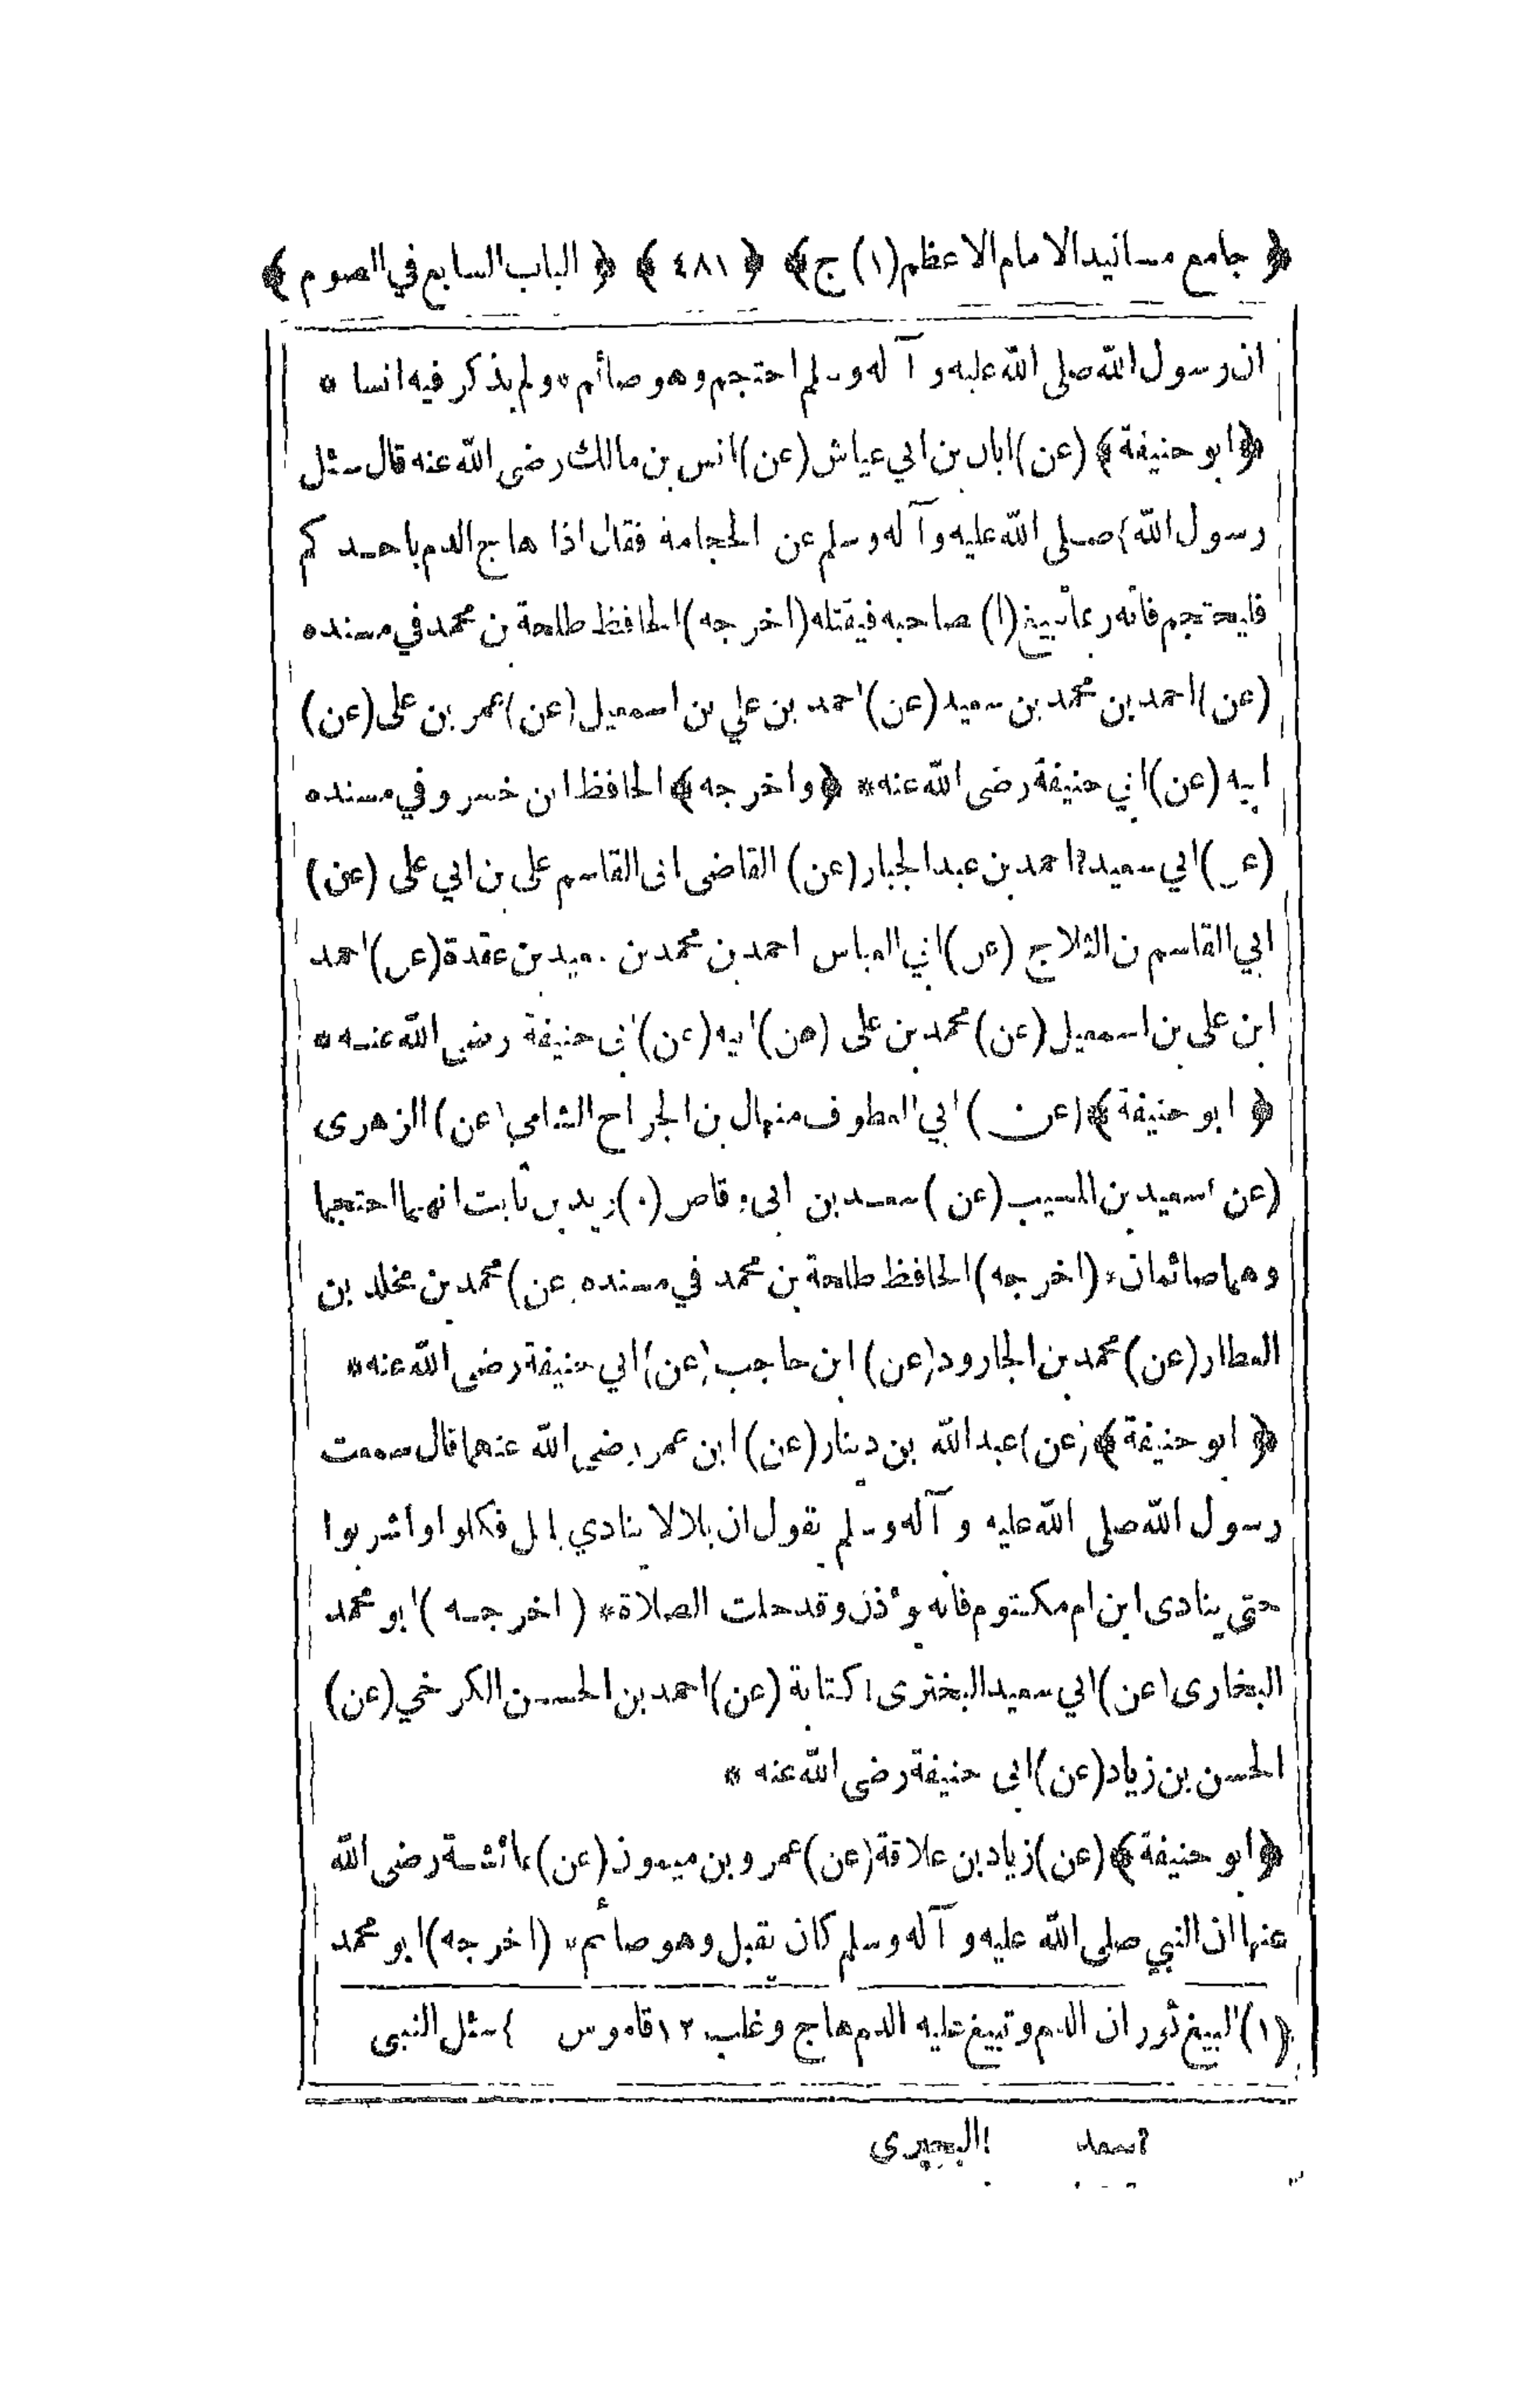 ﴿ جامع مسانيد الامام الاعظم (١) ج ﴾ ﴿ ٤٨١ ﴾ ﴿ الباب السابع في الصوم ﴾
ان رسول الله صلى الله عليه و آله وسلم احتجم وهو صائم * ولم يذكر فيه انسا *
﴿ ابو حنيفة ﴾ (عن) ابان بن ابي عياش (عن) انس بن مالك رضى الله عنه قال سئل
رسول الله } صلى الله عليه وآله وسلم عن الحجامة فقال اذا هاج الدم باحد كم
فليحتجم فانه ربما تبيغ (١) صاحبه فيقتله (اخرجه) الحافظ طلحة بن محمد في مسنده
(عن) احمد بن محمد بن سعيد (عن) احمد بن علي بن اسمعيل (عن) عمر بن على (عن)
ابيه (عن) ابي حنيفة رضى الله عنه * ﴿ واخرجه ﴾ الحافظ ابن خسرو في مسنده
(عن) ابي سعيد ? احمد بن عبد الجبار (عن) القاضى ابى القاسم على بن ابي على (عن)
ابي القاسم بن الثلاج (عن) ابي العباس احمد بن محمد بن سعيد بن عقدة (عن) احمد
ابن على بن اسمعيل (عن) محمد بن على (عن) ابيه (عن) ابى حنيفة رضى الله عنه *
﴿ ابو حنيفة ﴾ (عن) ابي العطوف منهال بن الجراح الشامي (عن) الزهرى
(عن) سعيد بن المسيب (عن) سعد بن ابى وقاص (و) زيد بن ثابت انهما احتجما
وهما صائمان * (اخرجه) الحافظ طلحة بن محمد في مسنده (عن) محمد بن مخلد بن
العطار (عن) محمد بن الجارود (عن) ابن حاجب (عن) ابي حنيفة رضى الله عنه *
﴿ ابو حنيفة ﴾ (عن) عبد الله بن دينار (عن) ابن عمر رضى الله عنهما قال سمعت
رسول الله صلى الله عليه و آله وسلم يقول ان بلالا ينادي بليل فكلوا واشربوا
حتى ينادى ابن ام مكتوم فانه يؤذن وقد حلت الصلاة * (اخرجه) ابو محمد
البخارى (عن) ابي سعيد البخترى ! كتابة (عن) احمد بن الحسن الكرخي (عن)
الحسن بن زياد (عن) ابى حنيفة رضى الله عنه *
﴿ ابو حنيفة ﴾ (عن) زياد بن علاقة (عن) عمرو بن ميمون (عن) عائشة رضى الله
عنها ان النبي صلى الله عليه و آله وسلم كان يقبل وهو صائم * (اخرجه) ابو محمد
(١) البيغ ثوران الدم وتبيغ عليه الدم هاج وغلب ١٢ قاموس } سئل النبى
? سعد ! البحيرى